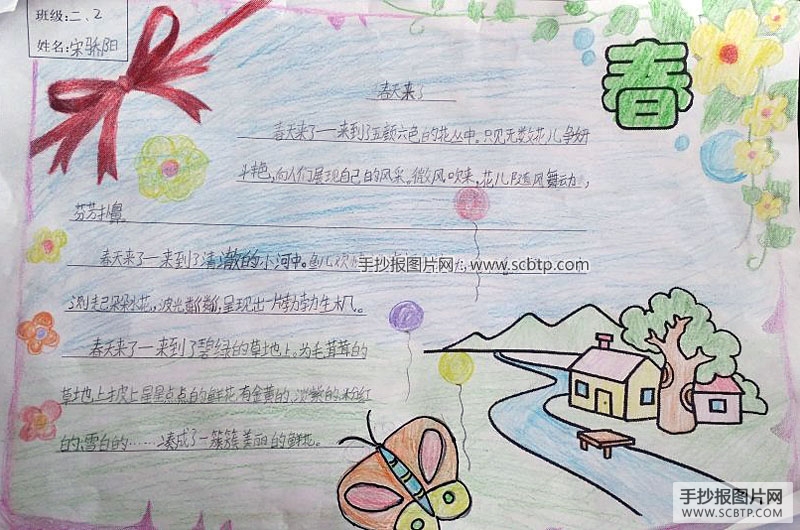 班级:二、2
姓名:宋骄阳
春
春天来了
春天来了——来到了五颜六色的花丛中。只见无数花儿争妍
斗艳,向人们展现自己的风采。微风吹来,花儿随风舞动,
芬芳扑鼻。
春天来了—来到了清澈的小河中。鱼儿欢
手抄报图片网 www.scbtp.com
测起朵朵水花,波光粼粼,呈现出一片勃勃生机。
春天来了一来到了碧绿的草地上。为毛茸茸的
草地上披上星星点点的鲜花,有金黄的、淡紫的、粉红
的、雪白的……凑成了一簇簇美丽的鲜花。
手抄报图片网
WWW.SCBTP.COM